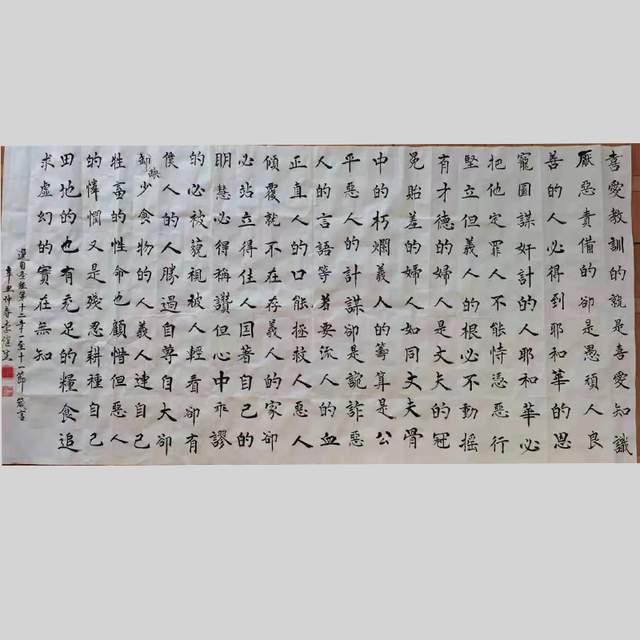 喜愛教訓的就是喜愛知識
厭惡責備的卻是愚頑人良
善的人必得到耶和華的恩
寵圖謀奸計的人耶和華必
把他定罪人不能恃憑惡行
堅立但義人的根必不動搖
有才德的婦人是丈夫的冠
冕貽羞的婦人如同丈夫骨
中的朽爛義人的籌算是公
平惡人的計謀卻是詭詐惡
人的言語等著要流人的血
正直人的口能拯救人惡人
傾覆就不在存義人的家卻
必站立得住人因著自己的
明慧必得稱讚但心中乖謬
的必被藐視被人輕看卻有
僕人的人勝過自尊自大卻
卻缺少食物的人義人連自己
牲畜的性命也顧惜但惡人
的憐憫又是殘忍耕種自己
田地的也有充足的糧食追
求虛幻的實在無知
選自圣經第十二章一至十一節箴言
辛丑仲春李